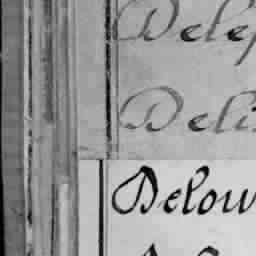 Delep
Deli
Delow